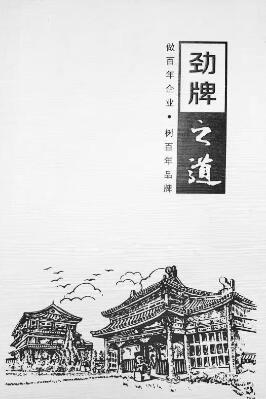 劲牌
之道
做百年企业·树百年品牌